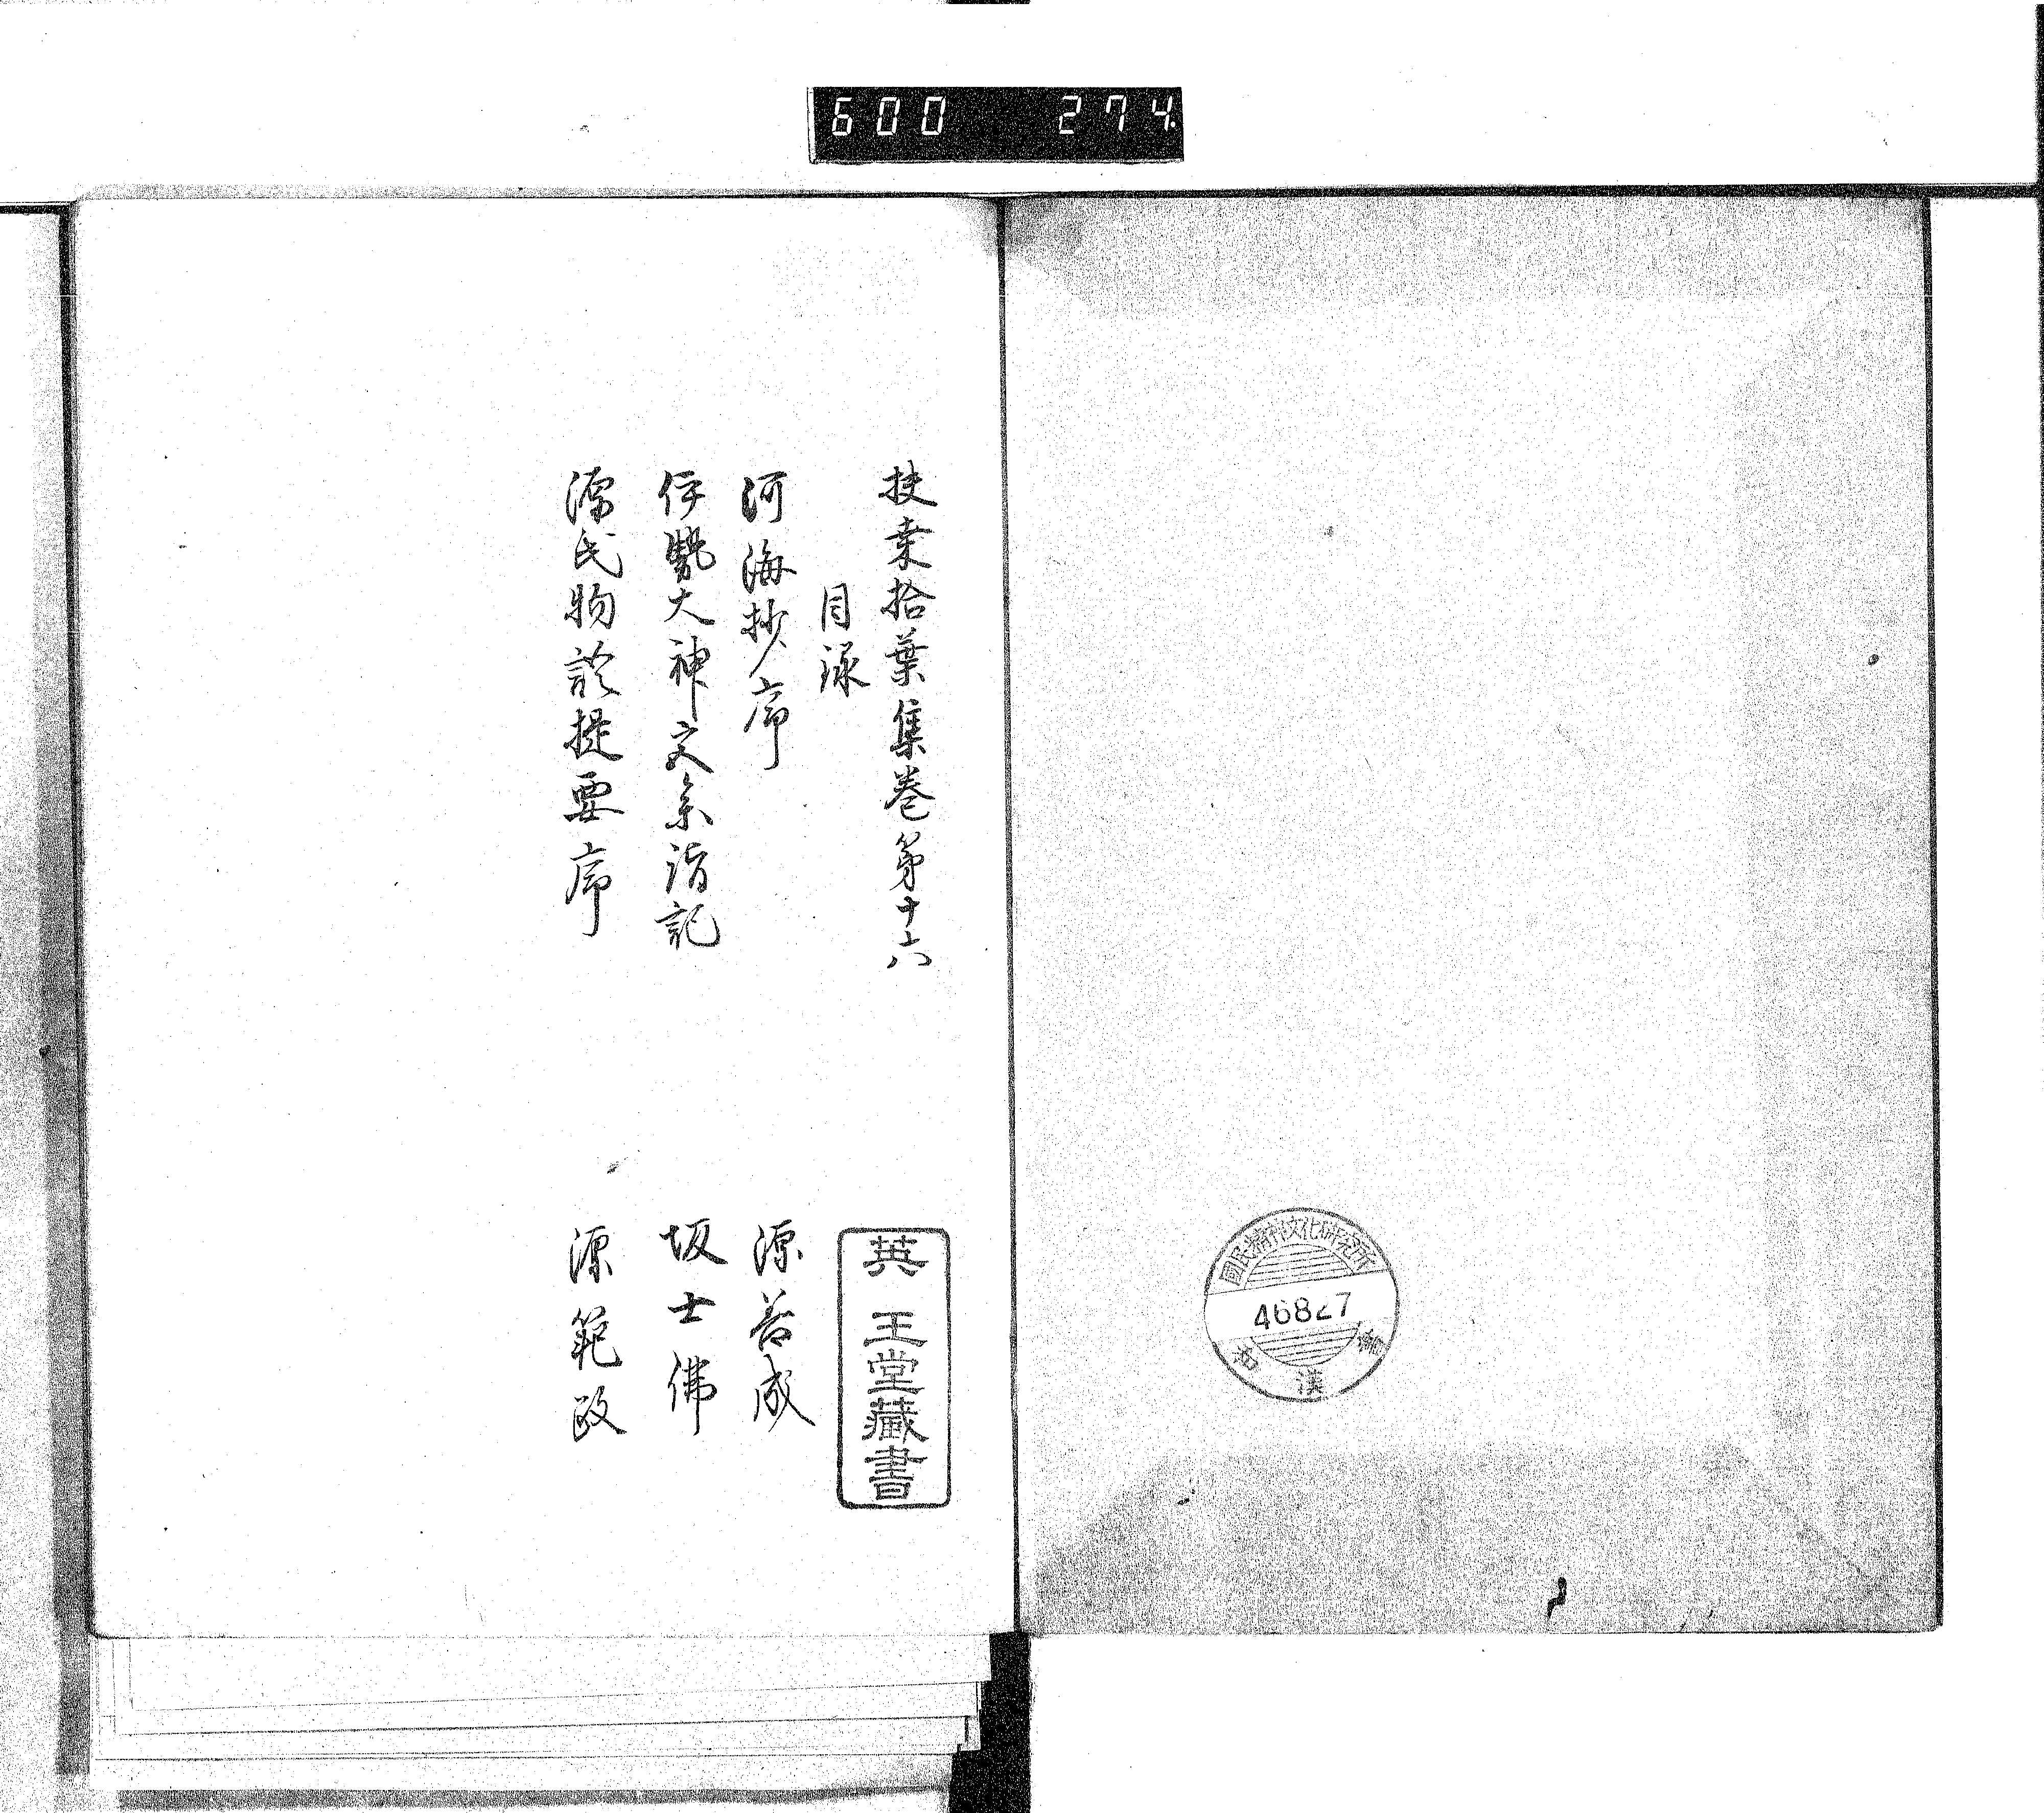 600 274
國民精神文化研究所
46827
和漢書
扶桒拾葉集巻第十六
目録
河海抄序 源善成
伊勢大神宮参詣記 坂士佛
源氏物語提要序 源範政
英王堂藏書